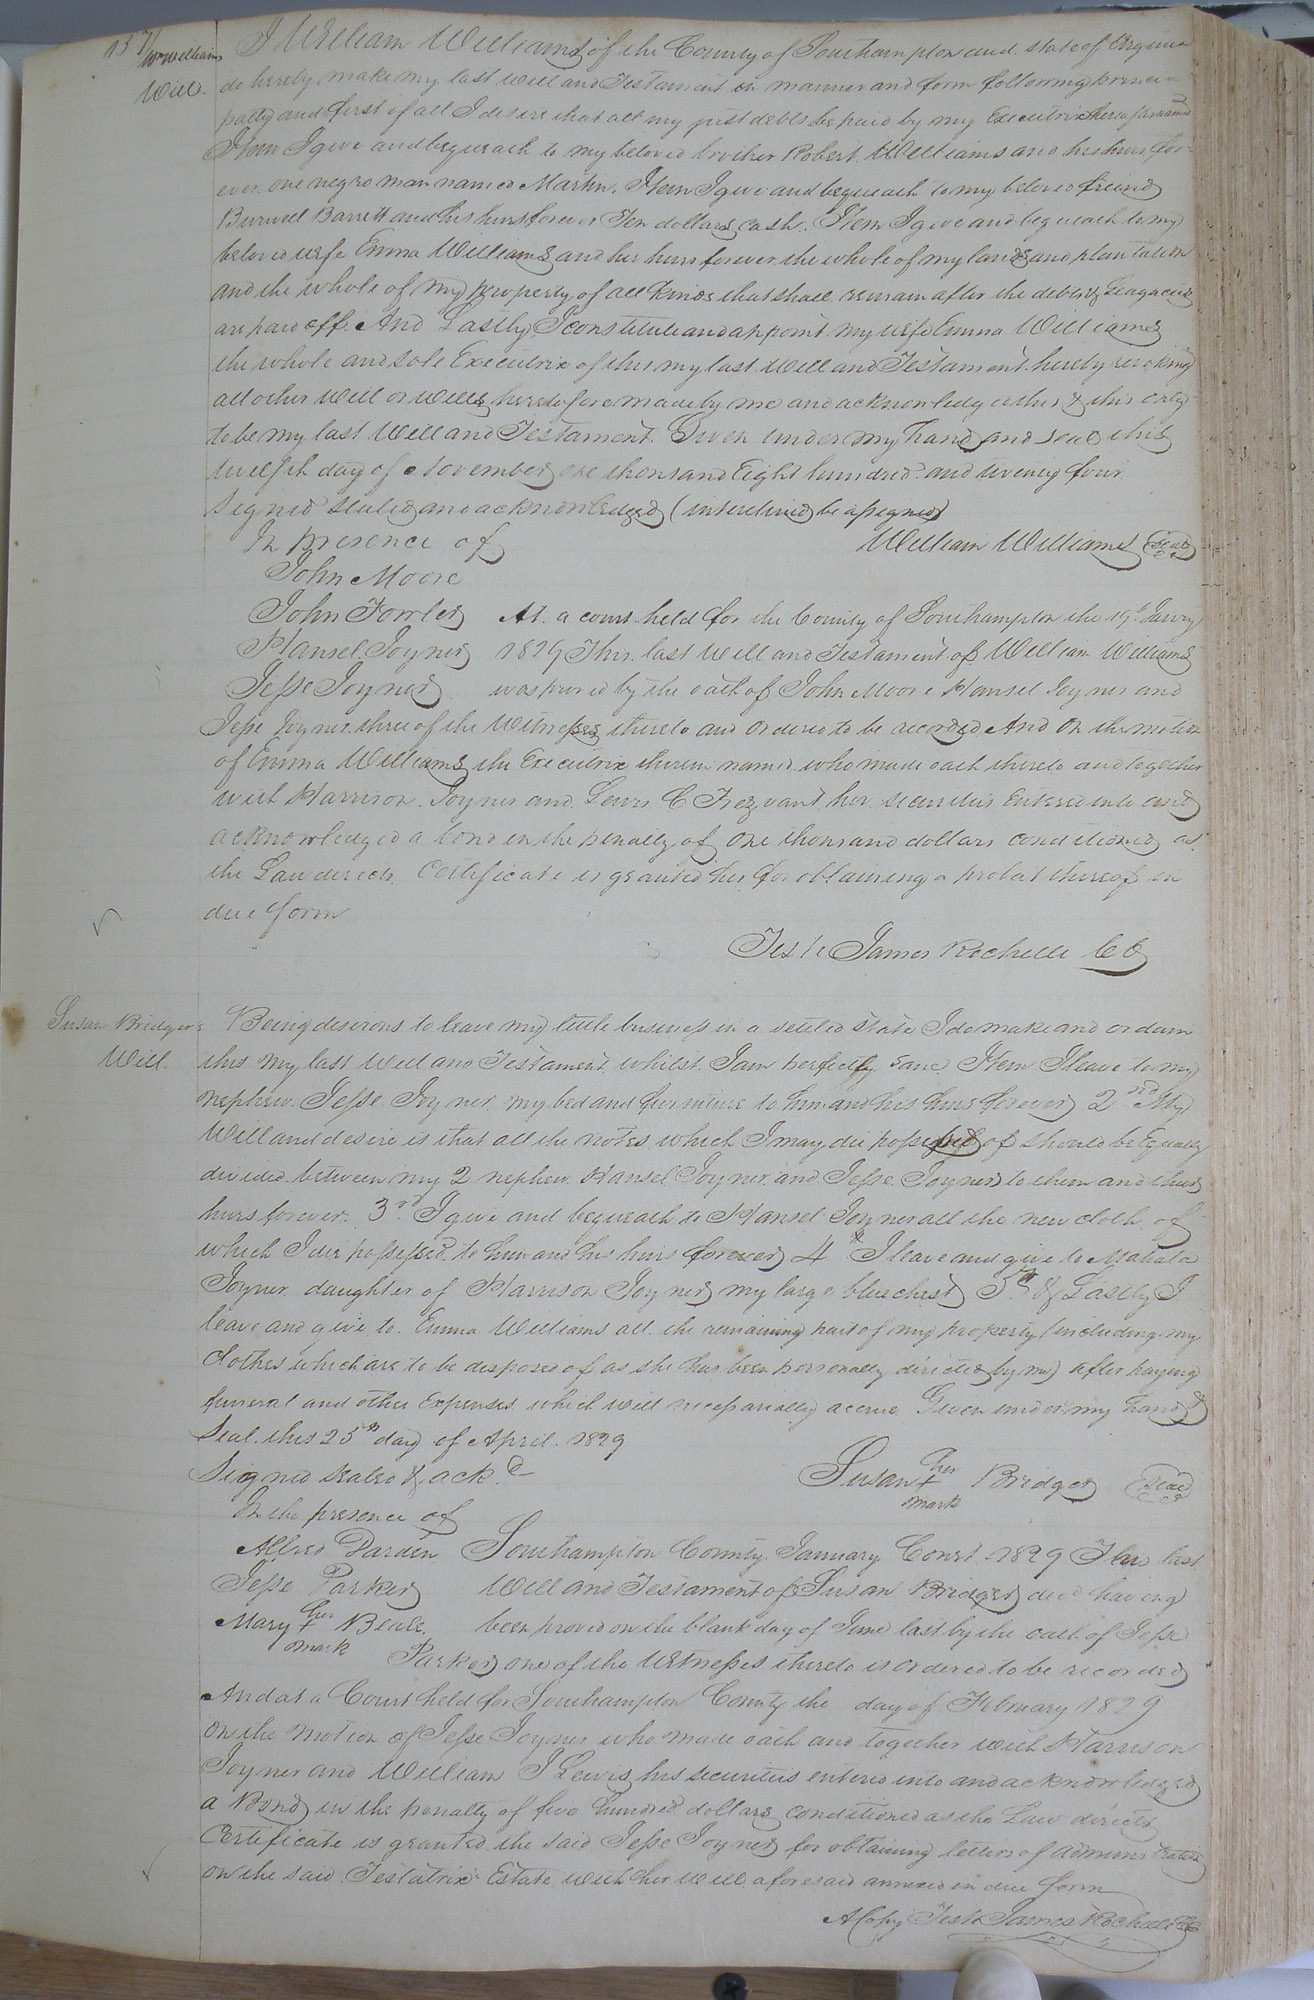 157/
Wm Williams
Will.
I William Williams of the County of Southampton and state of Virginia
do hereby make my last will and Testament in manner and form following princi=
pally and first of all I desire that all my just debts be paid by my Executrix hereafter named
Item I give and bequeath to my beloved brother Robert Williams and his heirs for=
ever one negro man named Martin. Item I give and bequeath to my beloved friend
Burwell Barrett and his heirs forever Ten dollars cash. Item I give and bequeath to my
beloved wife Emma Williams and her heirs forever the whole of my lands and plantation
and the whole of my property of all kinds that shall remain after the debts & Leagacies
are paid off. And Lastly I constitute and appoint my wife Emma Williams
the whole and sole Executrix of this my last Will and Testament hereby revoking
all other will or wills heretofore made by me and acknowledge this & this only
to be my last Will and Testament. Given under my hand and seal this
twelfth day of November one thousand Eight hundred and twenty four
Signed sealed and acknowledged (interlined be assigned)
In presence of
William Williams (seal)
John Moore
John Fowler
Hansel Joyner
Jesse Joyner
At a court held for the County of Southampton the 19th Janry
1829 This last Will and Testament of William Williams
was proved by the oath of John Moore Hansel Joyner and
Jesse Joyner three of the Witnesses thereto and Ordered to be recorded And On the motion
of Emma Williams the Executrix therein named who made oath thereto and together
with Harrison Joyner and Lewis C Trezvant her securities Entered into and
acknowledged a bond in the penalty of One thousand dollars conditioned as
the Law directs Certificate is granted her for obtaining a probat thereof in
due form
Teste James Rochelle CC
Susan Bridgers
Will.
Being desirous to leave my little business in a settled state I do make and ordain
this my last Will and Testament whilst I am perfectly sane Item I leave to my
nephew Jesse Joyner my bed and furniture to him and his heirs forever 2nd My
Will and desire is that all the notes which I may die possessed of should be Equally
divided between my 2 nephew Hansel Joyner and Jesse Joyner to them and their
heirs forever. 3rd I give and bequeath to Hansel Joyner all the new cloth of
which I die possessed to him and his heirs forever 4th I leave and give to Mahala
Joyner daughter of Harrison Joyner my large blue chest 5th & Lastly I
leave and give to Emma Williams all the remaining part of my property (including my
Clothes which are to be disposed of as she has been personally directed by me) after paying
funeral and other Expenses which will necessarially accrue Given under my hand &
Seal this 25th day of April 1829
Signed sealed & ackd
Susan her + mark Bridger (seal)
In the presence of
Alfred Darden
Jesse Parker
Mary her + mark Beale.
Southampton County January Court 1829 This last
Will and Testament of Susan Bridger decd having
been proved on the blank day of June last by the oath of Jesse
Parker one of the Witnesses thereto is Ordered to be recorded
And at a Court held for Southampton County the day of February 1829
On the motion of Jesse Joyner who made oath and together with Harrison
Joyner and William J Lewis his securities entered into and acknowledged
a Bond in the penalty of five hundred dollars conditioned as the Law directs
Certificate is granted the said Jesse Joyner for obtaining letters of administration
on the said Testatrix Estate with her Will aforesaid annexed in due form
A Copy Teste James Rochelle CC